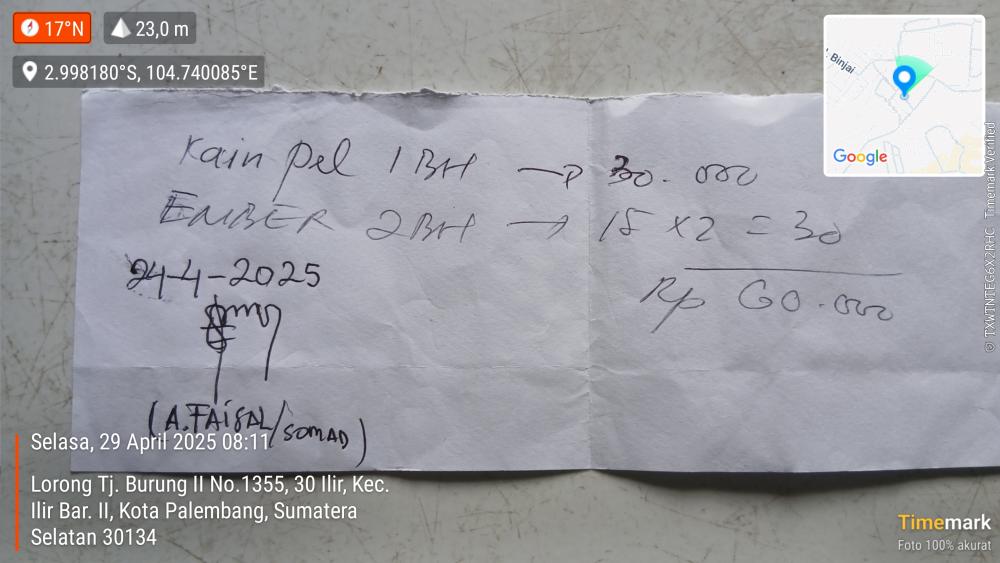 17°N
23,0 m
2.998180°S, 104.740085°E
Binjai
Google
Kain pel 1 BH → 30.000
EMBER 2 BH → 15 x 2 = 30
Rp 60.000
24-4-2025
(A.FAISAL/SOMAD)
Selasa, 29 April 2025 08:11
Lorong Tj. Burung II No.1355, 30 Ilir, Kec.
Ilir Bar. II, Kota Palembang, Sumatera
Selatan 30134
Timemark
Foto 100% akurat
© TXWTNTEG6X2RHC Timemark Verified